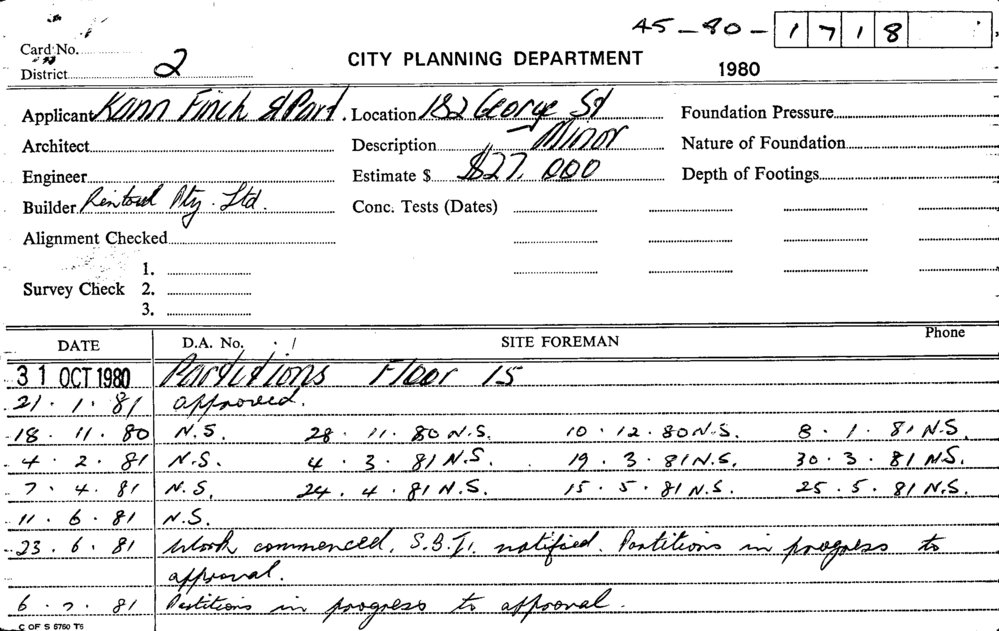 45-80-1718
Card No.
District 2
CITY PLANNING DEPARTMENT
1980
Applicant Kann Finch & Part. Location 182 George St Foundation Pressure
Architect Description Minor Nature of Foundation
Engineer Estimate $ $27,000 Depth of Footings
Builder Rintoul Pty. Ltd. Conc. Tests (Dates)
Alignment Checked
1.
Survey Check 2.
3.
DATE D.A. No. SITE FOREMAN Phone
31 OCT 1980 Partitions Floor 15
21.1.81 approved.
18.11.80 N.S. 28.11.80 N.S. 10.12.80 N.S. 8.1.81 N.S.
4.2.81 N.S. 4.3.81 N.S. 19.3.81 N.S. 30.3.81 N.S.
7.4.81 N.S. 24.4.81 N.S. 15.5.81 N.S. 25.5.81 N.S.
11.6.81 N.S.
23.6.81 Work commenced, S.B.I. notified. Partitions in progress to
approval.
6.7.81 Partitions in progress to approval.
C OF S 5760 T6